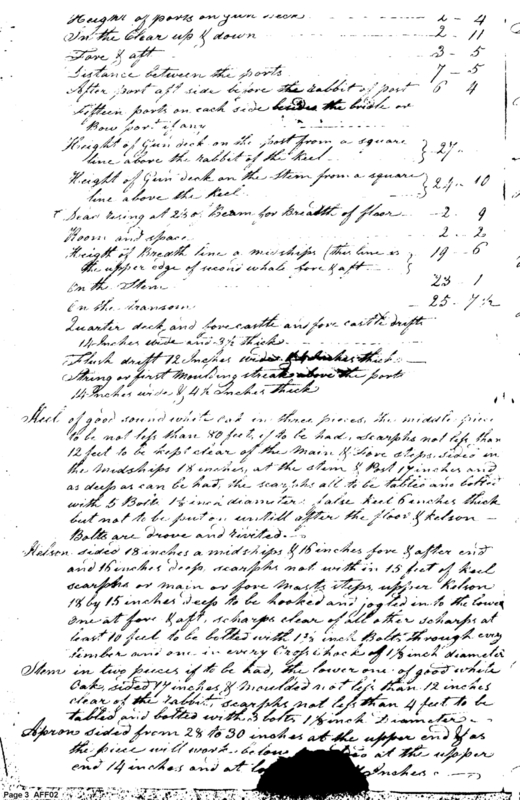 Height of ports on Gun deck 2 - 4
In the Clear up & down 2 - 11
Fore & aft 3 - 5
Distance between the ports 7 - 5
After port aft side before the rabbit of post 6 4
Fifteen ports on each side besides the bridle or
Bow port if any
Height of Gun deck on the post from a square
line above the rabbit of the Keel } 27
Height of Gun deck on the Stem from a square
line above the Keel } 24 - 10
Dead rising at 2/3 of Beam for Breadth of floor 2 - 9
Room and space 2 - 2
Heigth of Breadth line a midships (this line is
the upper edge of second whale fore & aft } 19 - 6
On the Stem 23 - 1
On the transom 25 - 7 1/2
Quarter deck, and fore castle and fore castle drifts
14 Inches wide and 3 1/2 thick
Flush drift 12 Inches wide Inches thick
String or first moulding streak above the ports
14 Inches wide & 4 1/2 Inches thick
Keel of good sound white Oak in three pieces, the middle piece
to be not less than 80 feet, if to be had, scarphs not less than
12 feet to be kept clear of the Main & Fore steps, sided in
the midships 18 inches, at the stem & Post 17 inches and
as deep as can be had, the scarphs all to be tabled and bolted
with 5 Bolts diameter. false Keel 6 inches thick
but not to be put on untill after the floor & Kelson
Bolts are drove and rivited.
Kelson sided 18 inches a midships & 16 inches fore & after end
and 16 inches deep, scarphs not with in 15 feet of Keel
scarphs or main or fore Masts steps, upper Kelson
18 by 15 inches deep to be hooked and joggled in to the lower
one at fore & aft, scharps clear of all other scharps at
least 10 feet to be bolted with inch Bolts through every
timber and one in every Crosschock of 1 1/8 inch diameter
Stem in two pieces if to be had, the lower one of good white
Oak, sided 17 inches, & moulded not less than 12 inches
clear of the rabbit scarphs not less than 4 feet to be
tabled and bolted with 3 bolts 1 1/8 inch Diameter
Apron sided from 28 to 30 inches at the upper end & as
the piece will work below at the upper
end 14 inches and at Inches
Page 3 AFF02